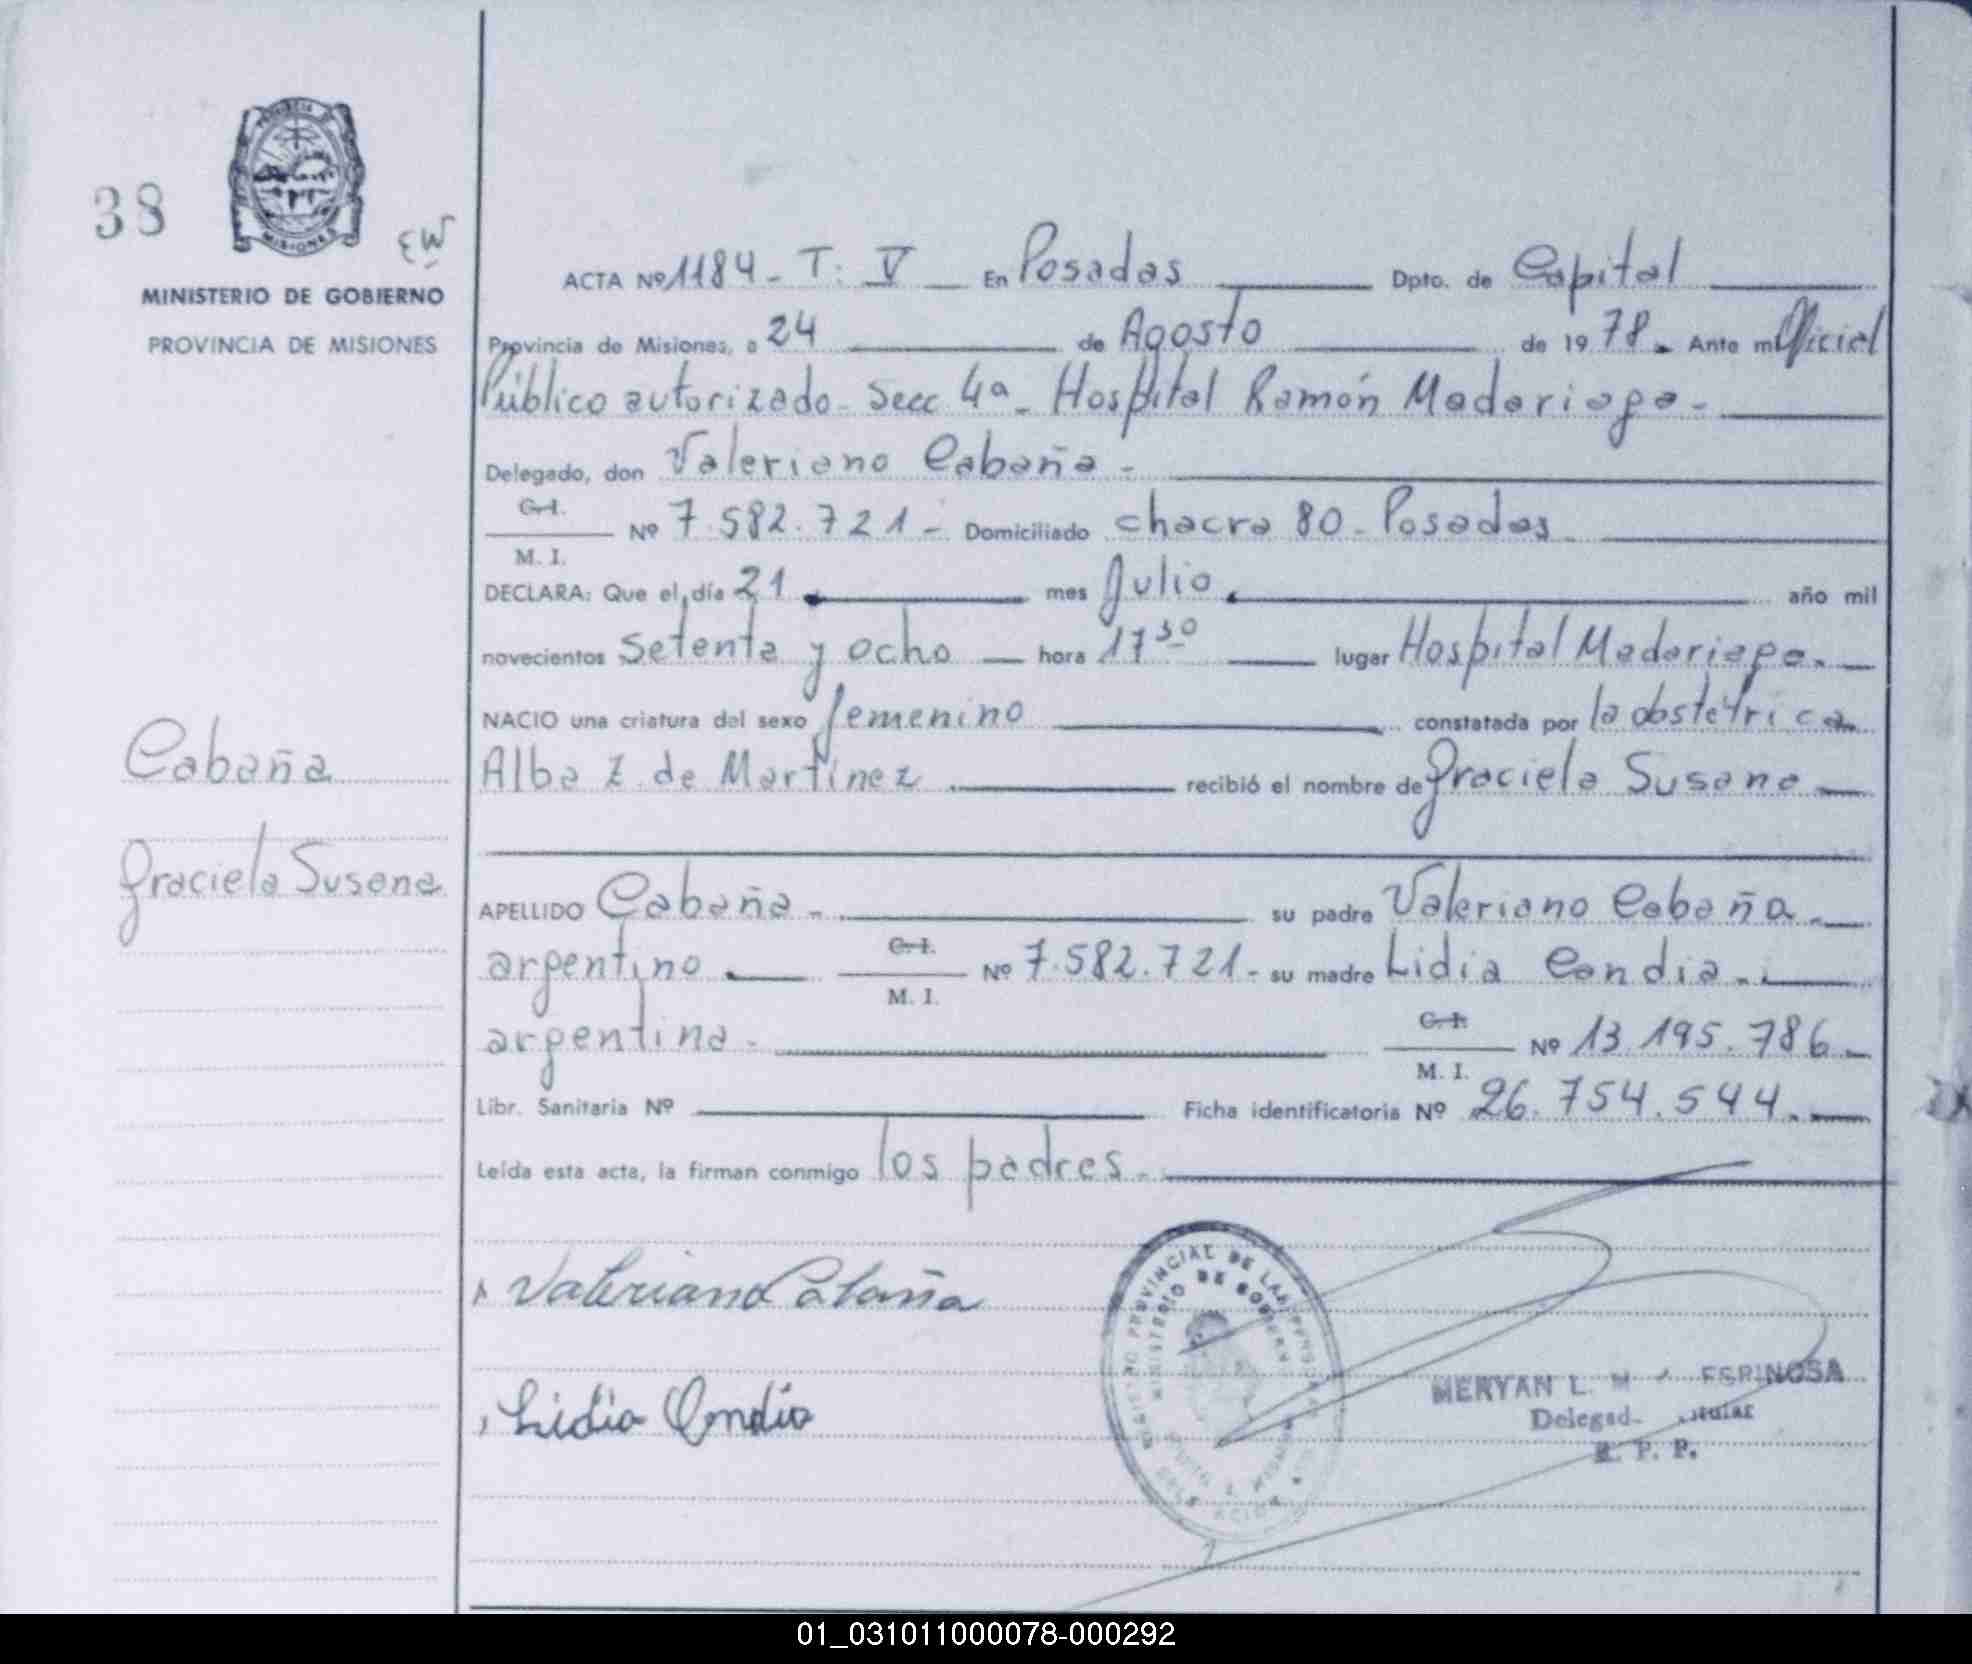 38
EW
MISIONES
MINISTERIO DE GOBIERNO
PROVINCIA DE MISIONES
ACTA Nº 1184 - T. V En Posadas Dpto. de Capital
Provincia de Misiones, a 24 de Agosto de 1978. Ante mi Oficial
Público autorizado - Secc 4ª - Hospital Ramón Madariaga -
Delegado, don Valeriano Cabaña -
C. I.
M. I. Nº 7.582.721 - Domiciliado chacra 80 - Posadas
DECLARA: Que el día 21 mes Julio año mil
novecientos setenta y ocho hora 17 30 lugar Hospital Madariaga.
NACIO una criatura del sexo femenino constatada por la obstétrica
Alba Z. de Martínez recibió el nombre de Graciela Susana
Cabaña
Graciela Susana
APELLIDO Cabaña - su padre Valeriano Cabaña
argentino C. I.
M. I. Nº 7.582.721 - su madre Lidia Candia
argentina - C. I.
M. I. Nº 13.195.786
Libr. Sanitaria Nº Ficha identificatoria Nº 26.754.544.
Leída esta acta, la firman conmigo los padres.
Valeriano Cabaña
Lidia Candia
PROVINCIAL DE LAS PERSONAS
MINISTERIO DE GOBIERNO
MERYAN L. ESPINOSA
R. P. P.
01_031011000078-000292